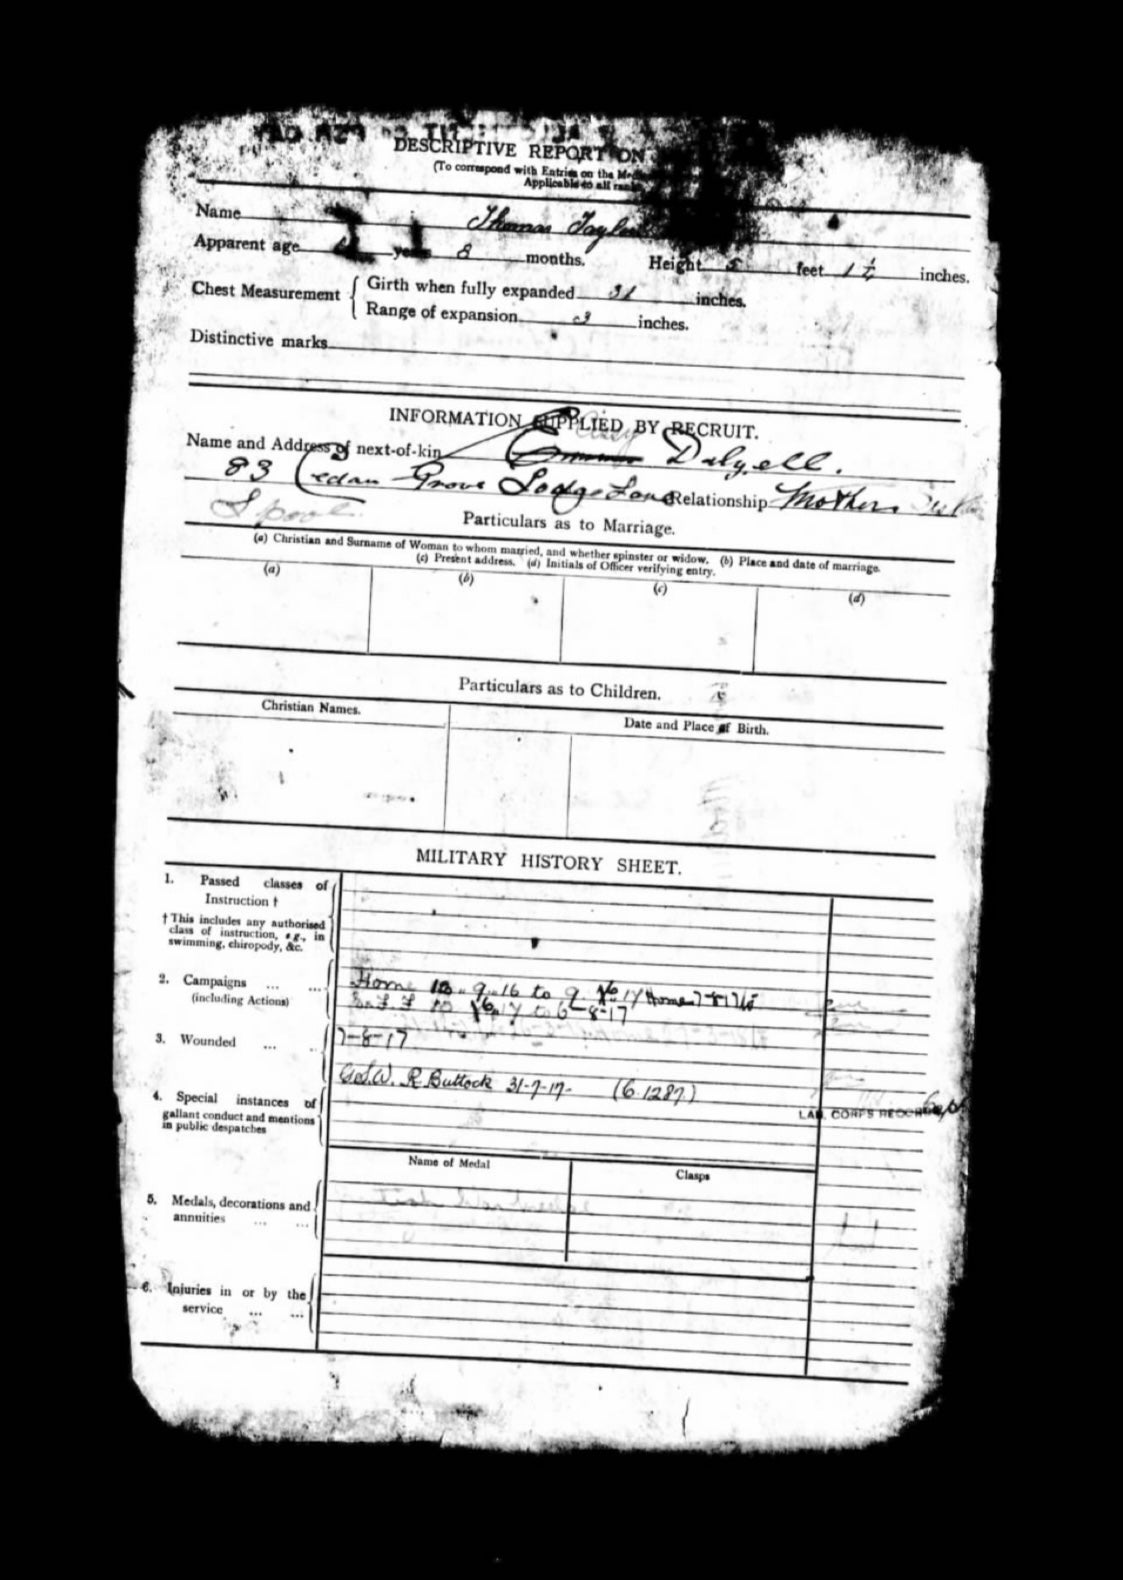 DESCRIPTIVE REPORT ON
(To correspond with Entries on the
Applicable to all ranks
Name Thomas Taylor
Apparent age years 8 months. Height 5 feet 1 ½ inches.
Chest Measurement { Girth when fully expanded 31 inches.
Range of expansion 3 inches.
Distinctive marks
INFORMATION SUPPLIED BY RECRUIT.
Name and Address of next-of-kin Dalyell.
83 Cedar Grove Lodge Lane Relationship Mother
L'pool
Particulars as to Marriage.
(a) Christian and Surname of Woman to whom married, and whether spinster or widow. (b) Place and date of marriage.
(c) Present address. (d) Initials of Officer verifying entry.
(a) (b) (c) (d)
Particulars as to Children.
Christian Names. Date and Place of Birth.
MILITARY HISTORY SHEET.
1. Passed classes of
Instruction †
† This includes any authorised
class of instruction, e.g., in
swimming, chiropody, &c.
2. Campaigns ... ... Home 10.9.16 to 9. 17 Home 7-8-17 to
(including Actions) 10 17 to 6-8-17
3. Wounded ... .. 7-8-17
G.S.W. R Buttock 31-7-17- (6.1287)
4. Special instances of
gallant conduct and mentions
in public despatches
LAB. CORPS RECORDS
Name of Medal Clasps
5. Medals, decorations and
annuities ... ...
6. Injuries in or by the
service ... ...